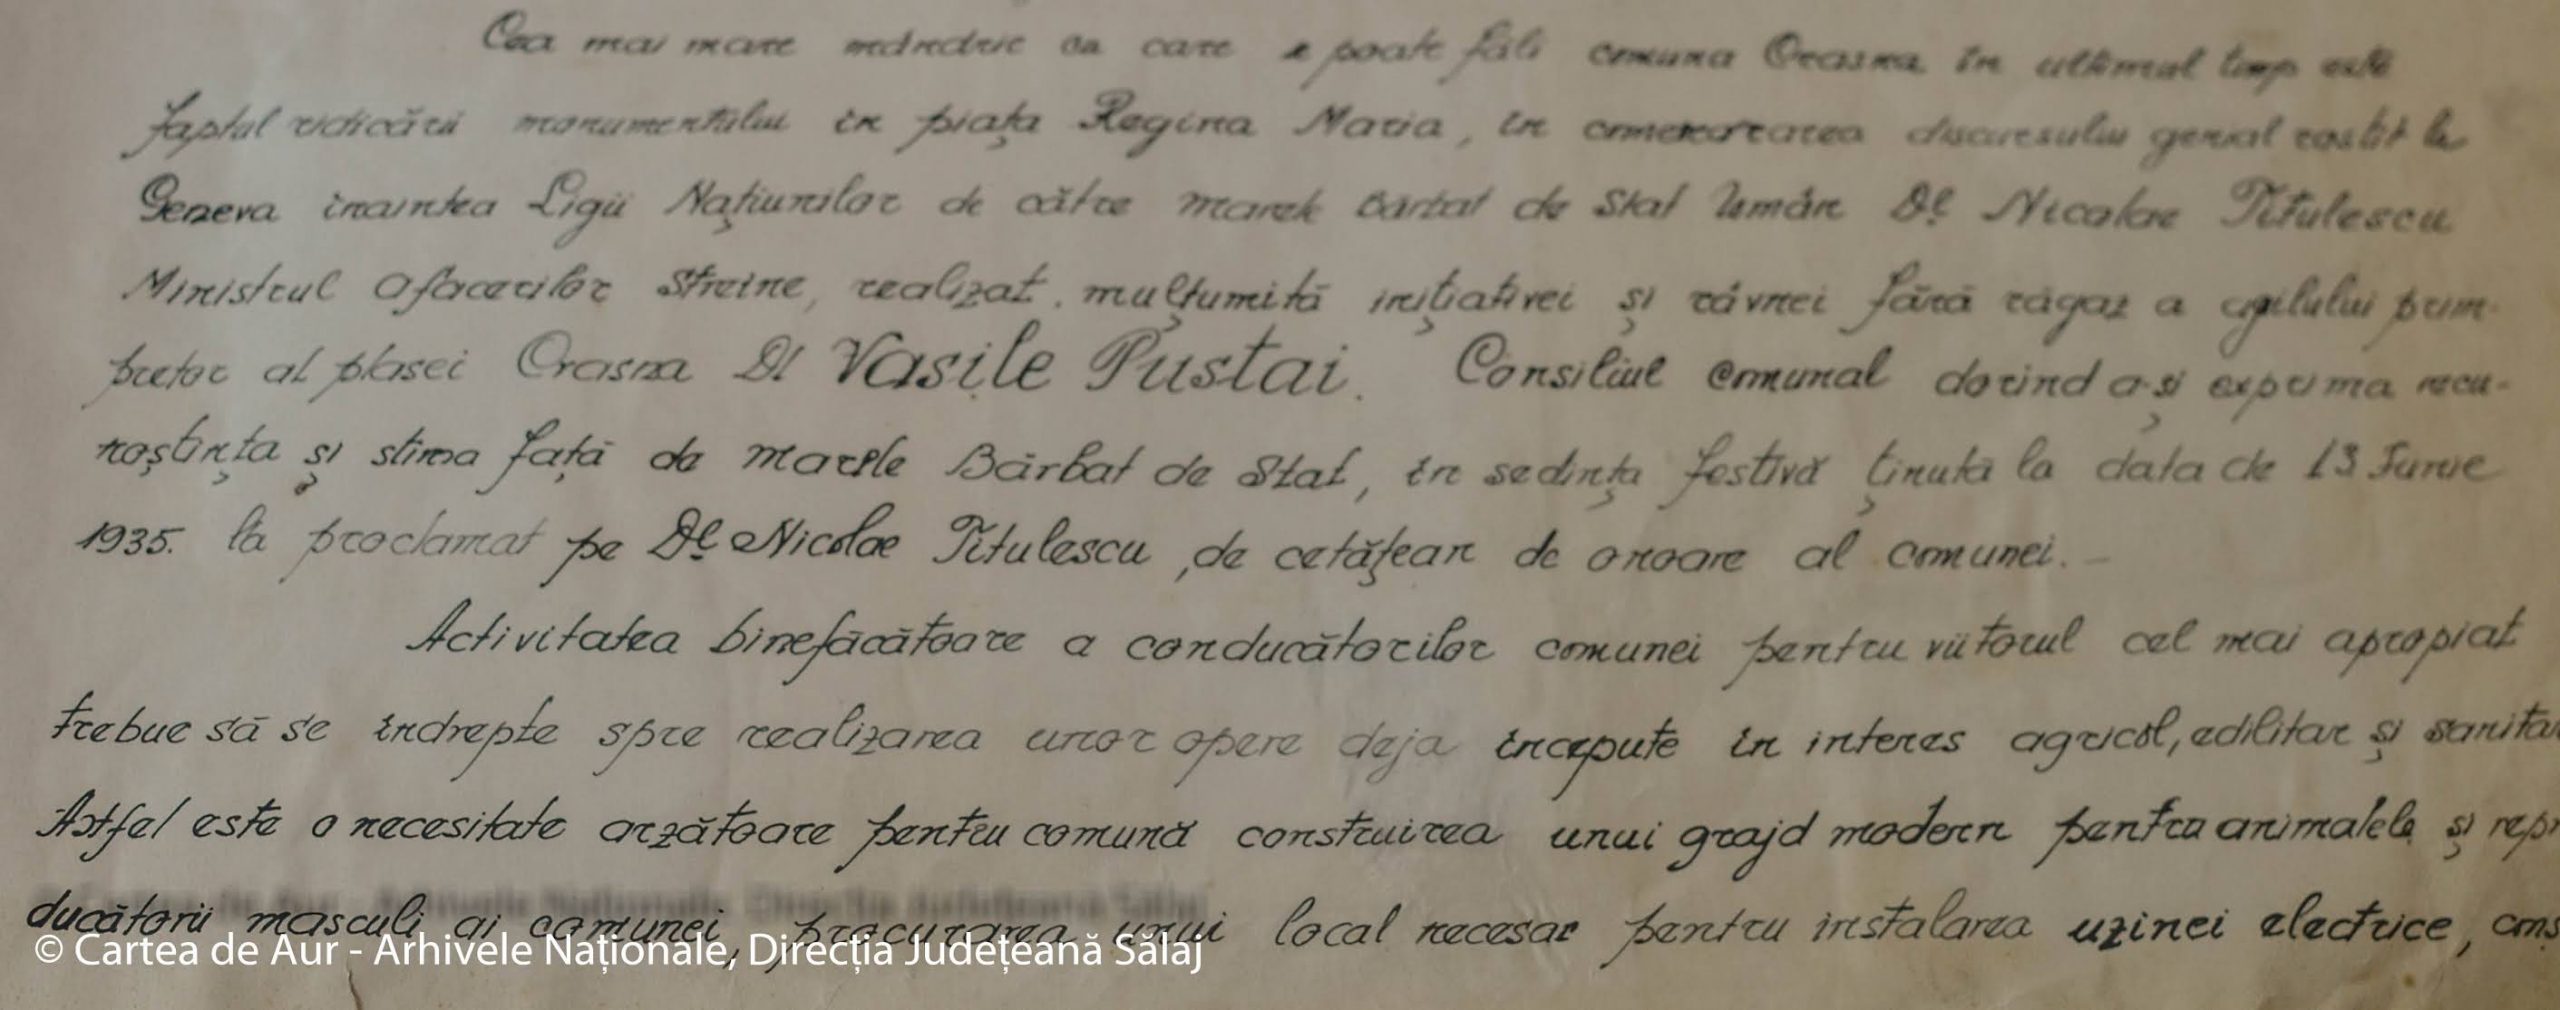 Cea mai mare mândrie cu care se poate făli comuna Crasna în ultimul timp este
faptul ridicării monumentului în piața Regina Maria, în comemorarea discursului genial rostit la
Geneva înaintea Ligii Națiunilor de către marele bărbat de Stat Român Dl. Nicolae Titulescu
Ministrul Afacerilor Streine, realizat mulțumită inițiativei și râvnei fără răgaz a agilului prim-
pretor al plasei Crasna Dl Vasile Pustai. Consiliul comunal dorind a-și exprima recu-
noștința și stima față de marele Bărbat de Stat, în sedința festivă ținută la data de 13 Iunie
1935. la proclamat pe Dl. Nicolae Titulescu, de cetățean de onoare al comunei.-
Activitatea binefăcătoare a conducătorilor comunei pentru viitorul cel mai apropiat
trebue să se îndrepte spre realizarea unor opere deja începute în interes agricol, edilitar și sanitar
Astfel este o necesitate arzătoare pentru comună construirea unui grajd modern pentru animalele și repr
ducătorii masculi ai comunei, procurarea unui local necesar pentru instalarea uzinei electrice, cons
© Cartea de Aur - Arhivele Naționale, Direcția Județeană Sălaj